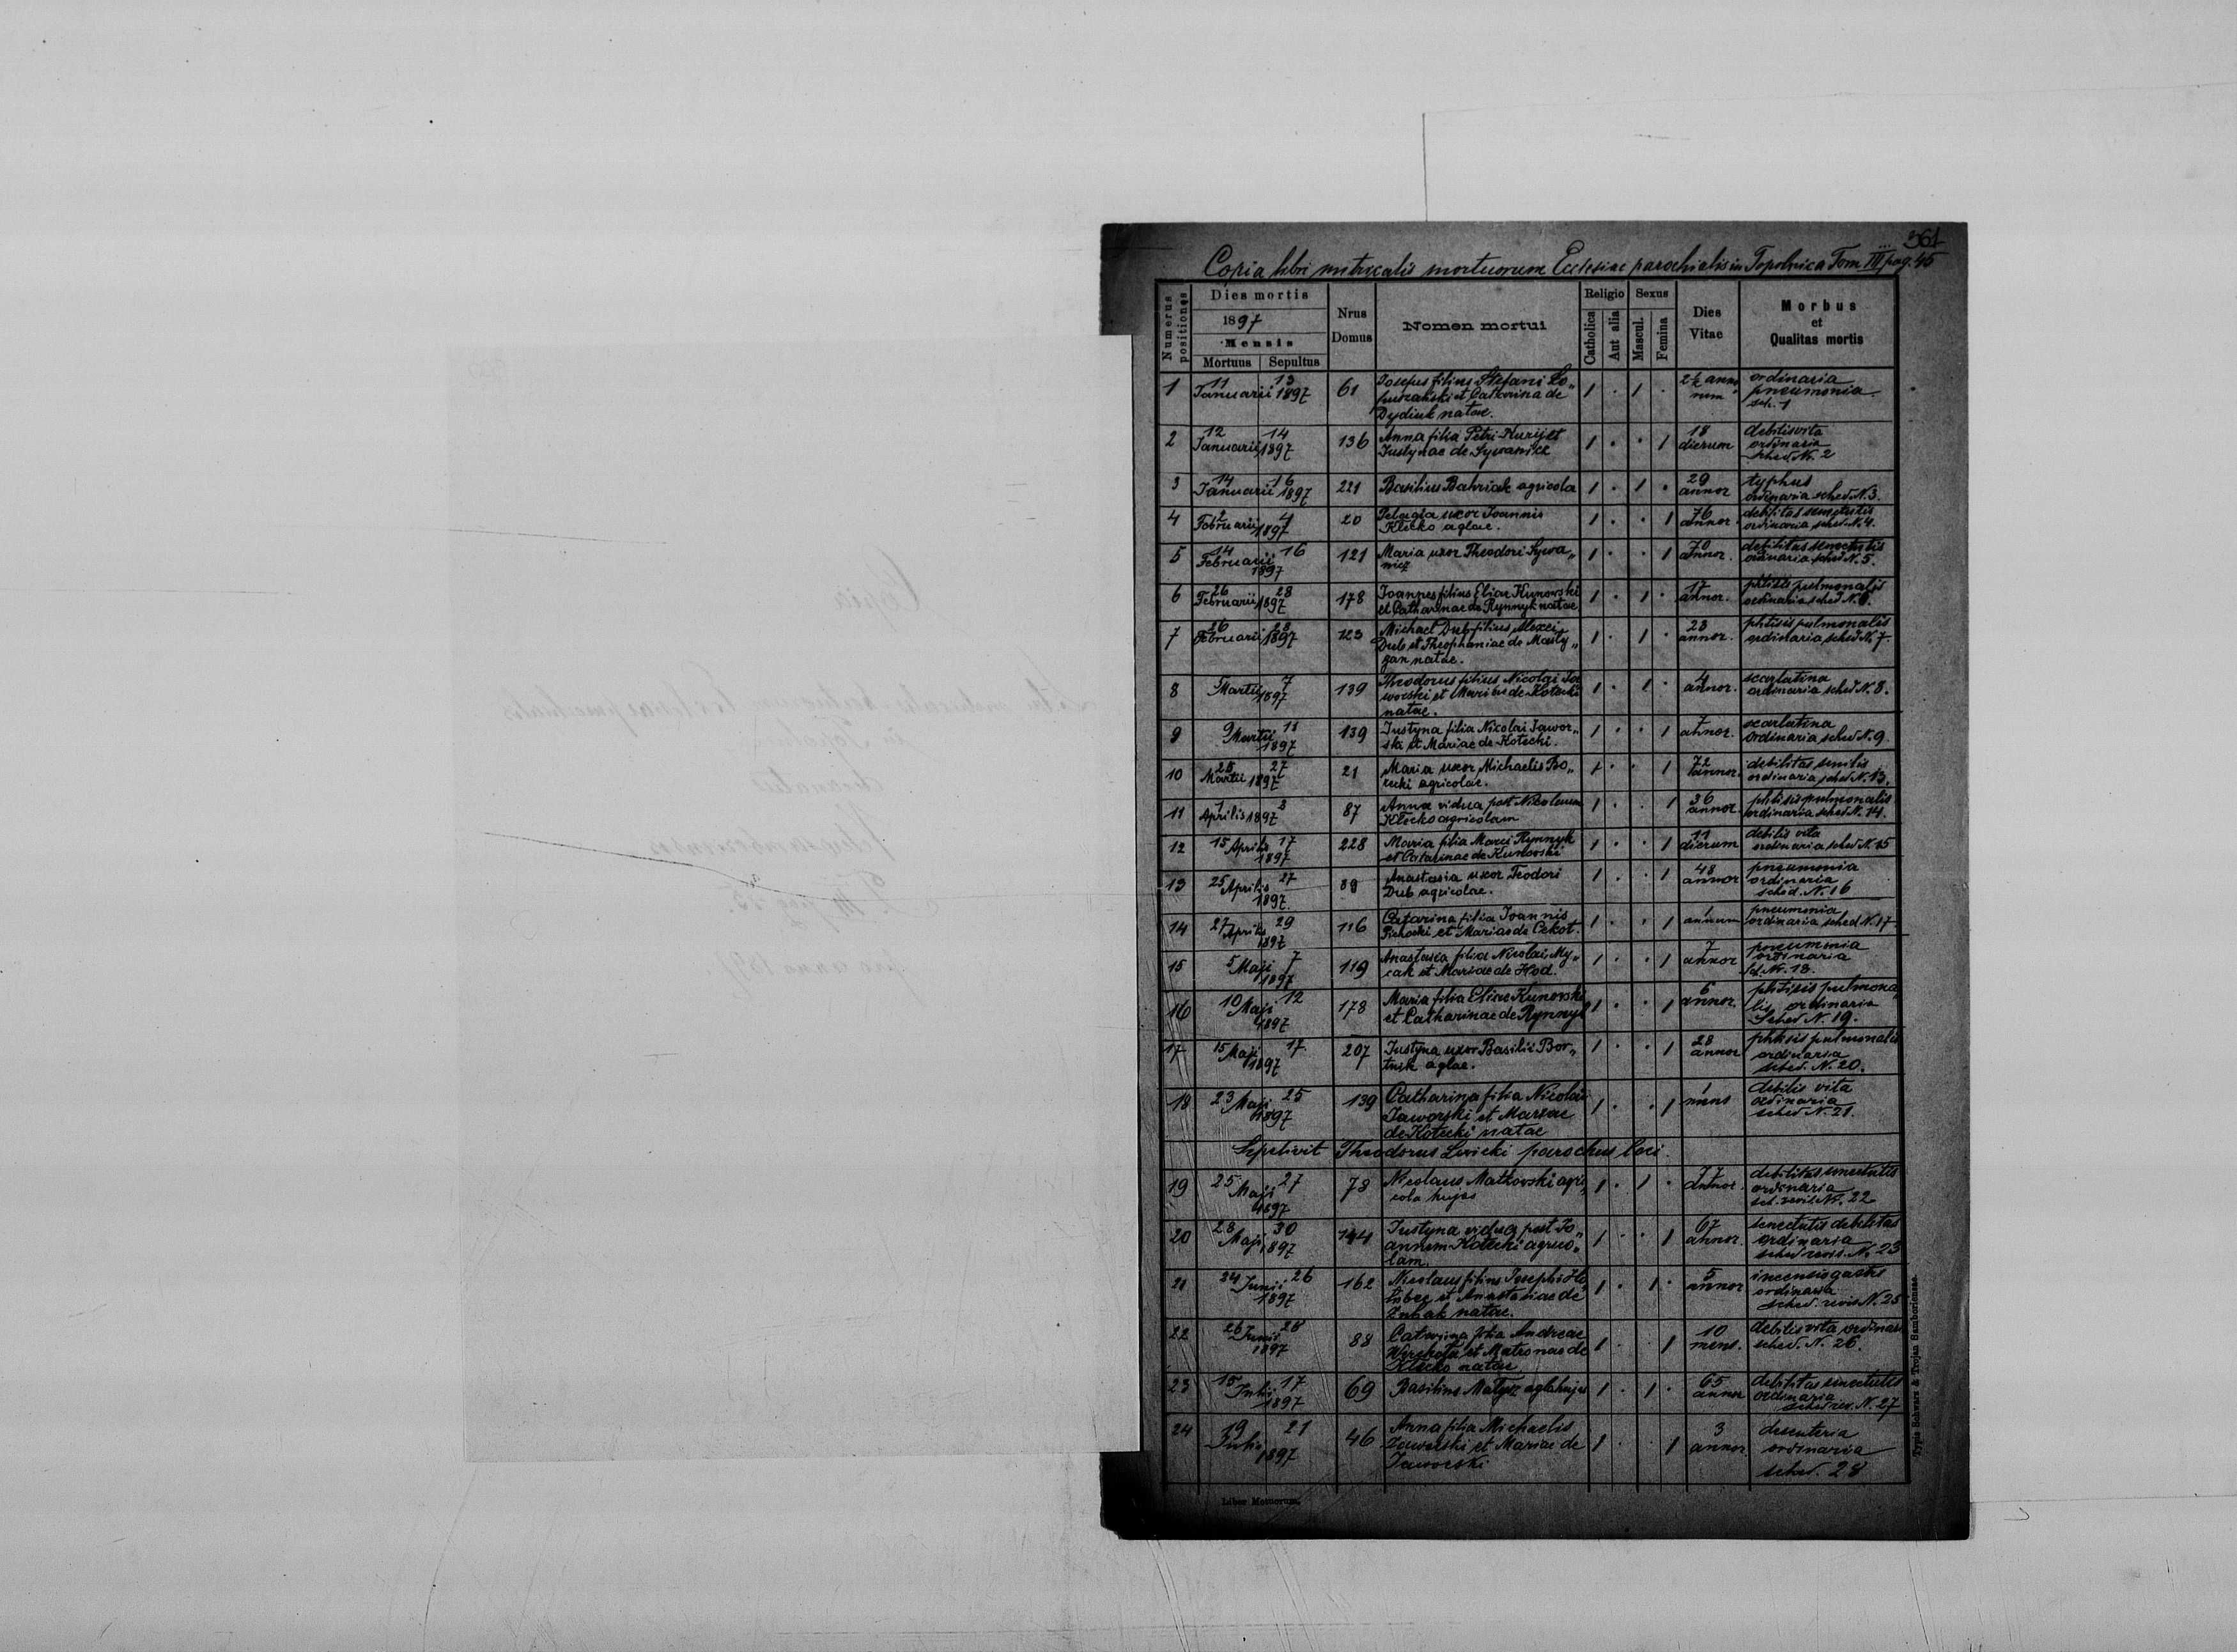 361
Copia libri metricalis mortuorum Ecclesiae parochialis in Topolnica Tom III pag. 45
Numerus positiones
Dies mortis
1897
Mensis
Mortuus Sepultus
Nrus Domus
Nomen mortui
Religio
Catholica
Aut alia
Sexus
Mascul.
Femina
Dies Vitae
Morbus et Qualitas mortis
1 11 Januarii 13 1897 61 Josephus filius Stefani Lo„ 1 . 1 . 2½ anno rum ordinaria
puszahski et Catharina de pneumonia
Dydiuk natae. sch. 1
2 12 Januarii 14 1897 136 Anna filia Petri Kurij et 1 . . 1 18 dierum debilis vita
Justynae de Sywanicz ordinaria
sched N. 2
3 14 Januarii 16 1897 221 Basilius Bahriak agricola 1 . 1 . 29 annor typhus
ordinaria sched. N. 3.
4 2 Februarii 4 1897 20 Pelagia uxor Joannis 1 . . 1 76 annor. debilitas senectutis
Klecko aglae. ordinaria sched. N. 4.
5 14 Februarii 16 1897 121 Maria uxor Theodori Sywa„ 1 . . 1 70 annor. debilitas senectutis
nicz ordinaria sched N. 5.
6 26 Februarii 28 1897 178 Joannes filius Eliae Kunowski 1 . 1 . 17 annor. phtisis pulmonalis
et Catharinae de Rynnyk natae ordinaria sched N. 6.
7 26 Februarii 28 1897 123 Michael Dub filius Alexei 1 . 1 . 23 annor. phtisis pulmonalis
Dub et Theophaniae de Masty„ ordinaria sched N. 7.
gan natae.
8 5 Martii 7 1897 139 Theodorus filius Nicolai Ja 1 . 1 . 4 annor. scarlatina
worski et Mariae de Kotecki ordinaria sched N. 8.
natae.
9 9 Martii 11 1897 139 Justyna filia Nicolai Jawor„ 1 . . 1 7 annor. scarlatina
ski et Mariae de Kotecki. ordinaria sched N. 9.
10 25 Martii 27 1897 21 Maria uxor Michaelis Bo„ 1 . . 1 72 annor. debilitas senilis
recki agricolae. ordinaria sched N. 13.
11 1 Aprilis 3 1897 87 Anna vidua post Nicolaum 1 . . 1 36 annor. phtisis pulmonalis
Klecko agricolam ordinaria sched N. 14.
12 15 Aprilis 17 1897 228 Maria filia Marci Rynnyk 1 . . 1 11 dierum debilis vita
et Catarinae de Kunowski ordinaria sched N. 15
13 25 Aprilis 27 1897. 89 Anastasia uxor Teodori 1 . . 1 48 annor pneumonia
Dub agricolae. ordinaria
sched. N. 16
14 27 Aprilis 29 1897 116 Catarina filia Joannis 1 . . 1 1 annum pneumonia
Pichocki et Mariae de Cekot. ordinaria sched N. 17
15 5 Maji 7 1897 119 Anastasia filia Nicolai My„ 1 . . 1 7 annor pneumonia
cak et Mariae de Hod. ordinaria
sd. N. 18.
16 10 Maji 12 1897 178 Maria filia Eliae Kunowski 1 . . 1 6 annor. phtisis pulmona„
et Catharinae de Rynnyk lis, ordinaria
Sched N. 19.
17 15 Maji 17 1897 207 Justyna uxor Basilii Bor„ 1 . . 1 28 annor phtisis pulmonalis
tnik aglae. ordinaria
sched. N. 20.
18 23 Maji 25 1897 139 Catharina filia Nicolai 1 . . 1 1 mens debilis vita
Jaworski et Mariae ordinaria
de Kotecki natae sched N. 21.
Sepelivit Theodorus Lewicki parochus loci.
19 25 Maji 27 1897 78 Nicolaus Matkowski agri„ 1 . 1 . 77 annor. debilitas senectutis
cola hujas ordinaria
sch. revis N. 22
20 28 Maji 30 1897 144 Justyna vidua post Jo„ 1 . . 1 67 annor. senectutis debilitas
annem Kotecki agrico„ ordinaria
lam. sched revis. N. 23
21 24 Junii 26 1897 162 Nicolaus filius Josephi Ho 1 . 1 . 5 annor incensis gastis
lubec et Anastasiae de ordinaria
Zubak natae. sched. revis N. 25
22 26 Junii 28 1897 88 Catarina filia Andreae 1 . . 1 10 mens. debilis vita ordinar
et Matronae de sched. N. 26.
Klecko natae
23 15 Julii 17 1897 69 Basilius Matysz agla hujas 1 . 1 . 65 annor debilitas senectutis
ordinaria
sched rev. N. 27
24 19 Julii 21 1897 46 Anna filia Michaelis 1 . . 1 3 annor. desenteria
Jaworski et Mariae de ordinaria
Jaworski sched. 28
Liber Motuorum.
Typis Schwarz & Trojan Samboriensae.